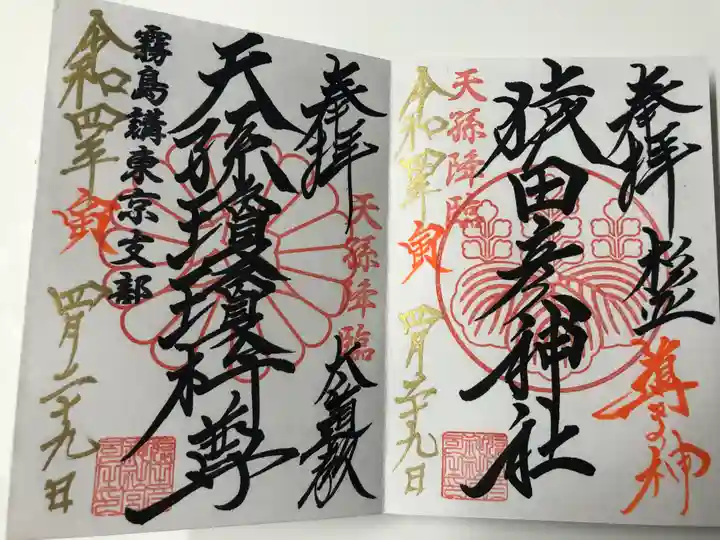 奉拝
桜
導きの神
猿田彦神社
天孫降臨
令和四年
寅
四月二十九日
奉拝
天孫降臨
大道教
天孫瓊瓊杵尊
霧島講東京支部
令和四年
寅
四月二十九日